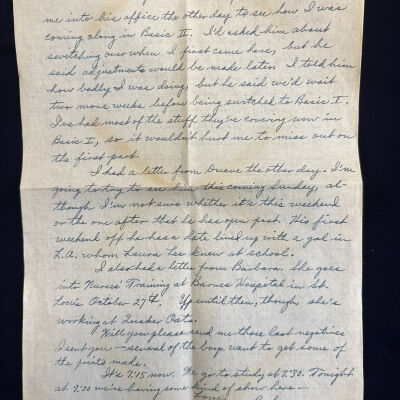 me into his office the other day to see how I was
coming along in Basic II. I'd asked him about
switching over when I first came here, but he
said adjustments would be made later. I told him
how badly I was doing, but he said we'd wait
two more weeks before being switched to Basic I.
I've had most of the stuff they're covering now in
Basic I, so it wouldn't hurt me to miss out on
the first part.
I had a letter from Duane the other day. I'm
going to try to see him this coming Sunday, al-
though I'm not sure whether it's this weekend
or the one after that he has open post. His first
weekend off he has a date lined up with a gal in
L.A. whom Laura Lee knew at school.
I also had a letter from Barbara. She goes
into Nurses' Training at Barnes Hospital in St.
Louis October 27th. Up until then, though, she's
working at Quaker Oats.
Will you please send me those last negatives
I sent you — several of the boys want to get some of
the prints made.
It's 7:15 now. We go to study at 7:30. Tonight
at 9:00 we're having some kind of show here. —
Love,